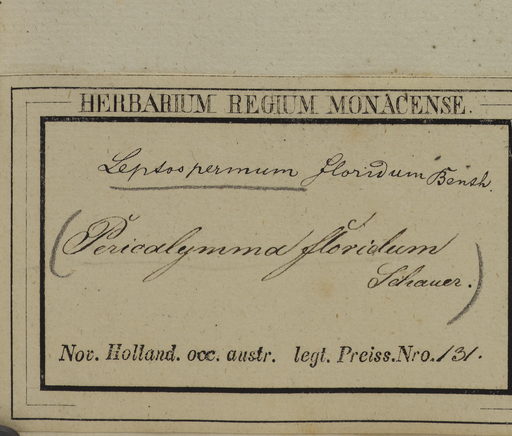 HERBARIUM REGIUM MONACENSE.
Leptospermum floridum Benth.
(Pericalymma floridum
Schauer.)
Nov. Holland. occ. austr. legt. Preiss. Nro. 131.